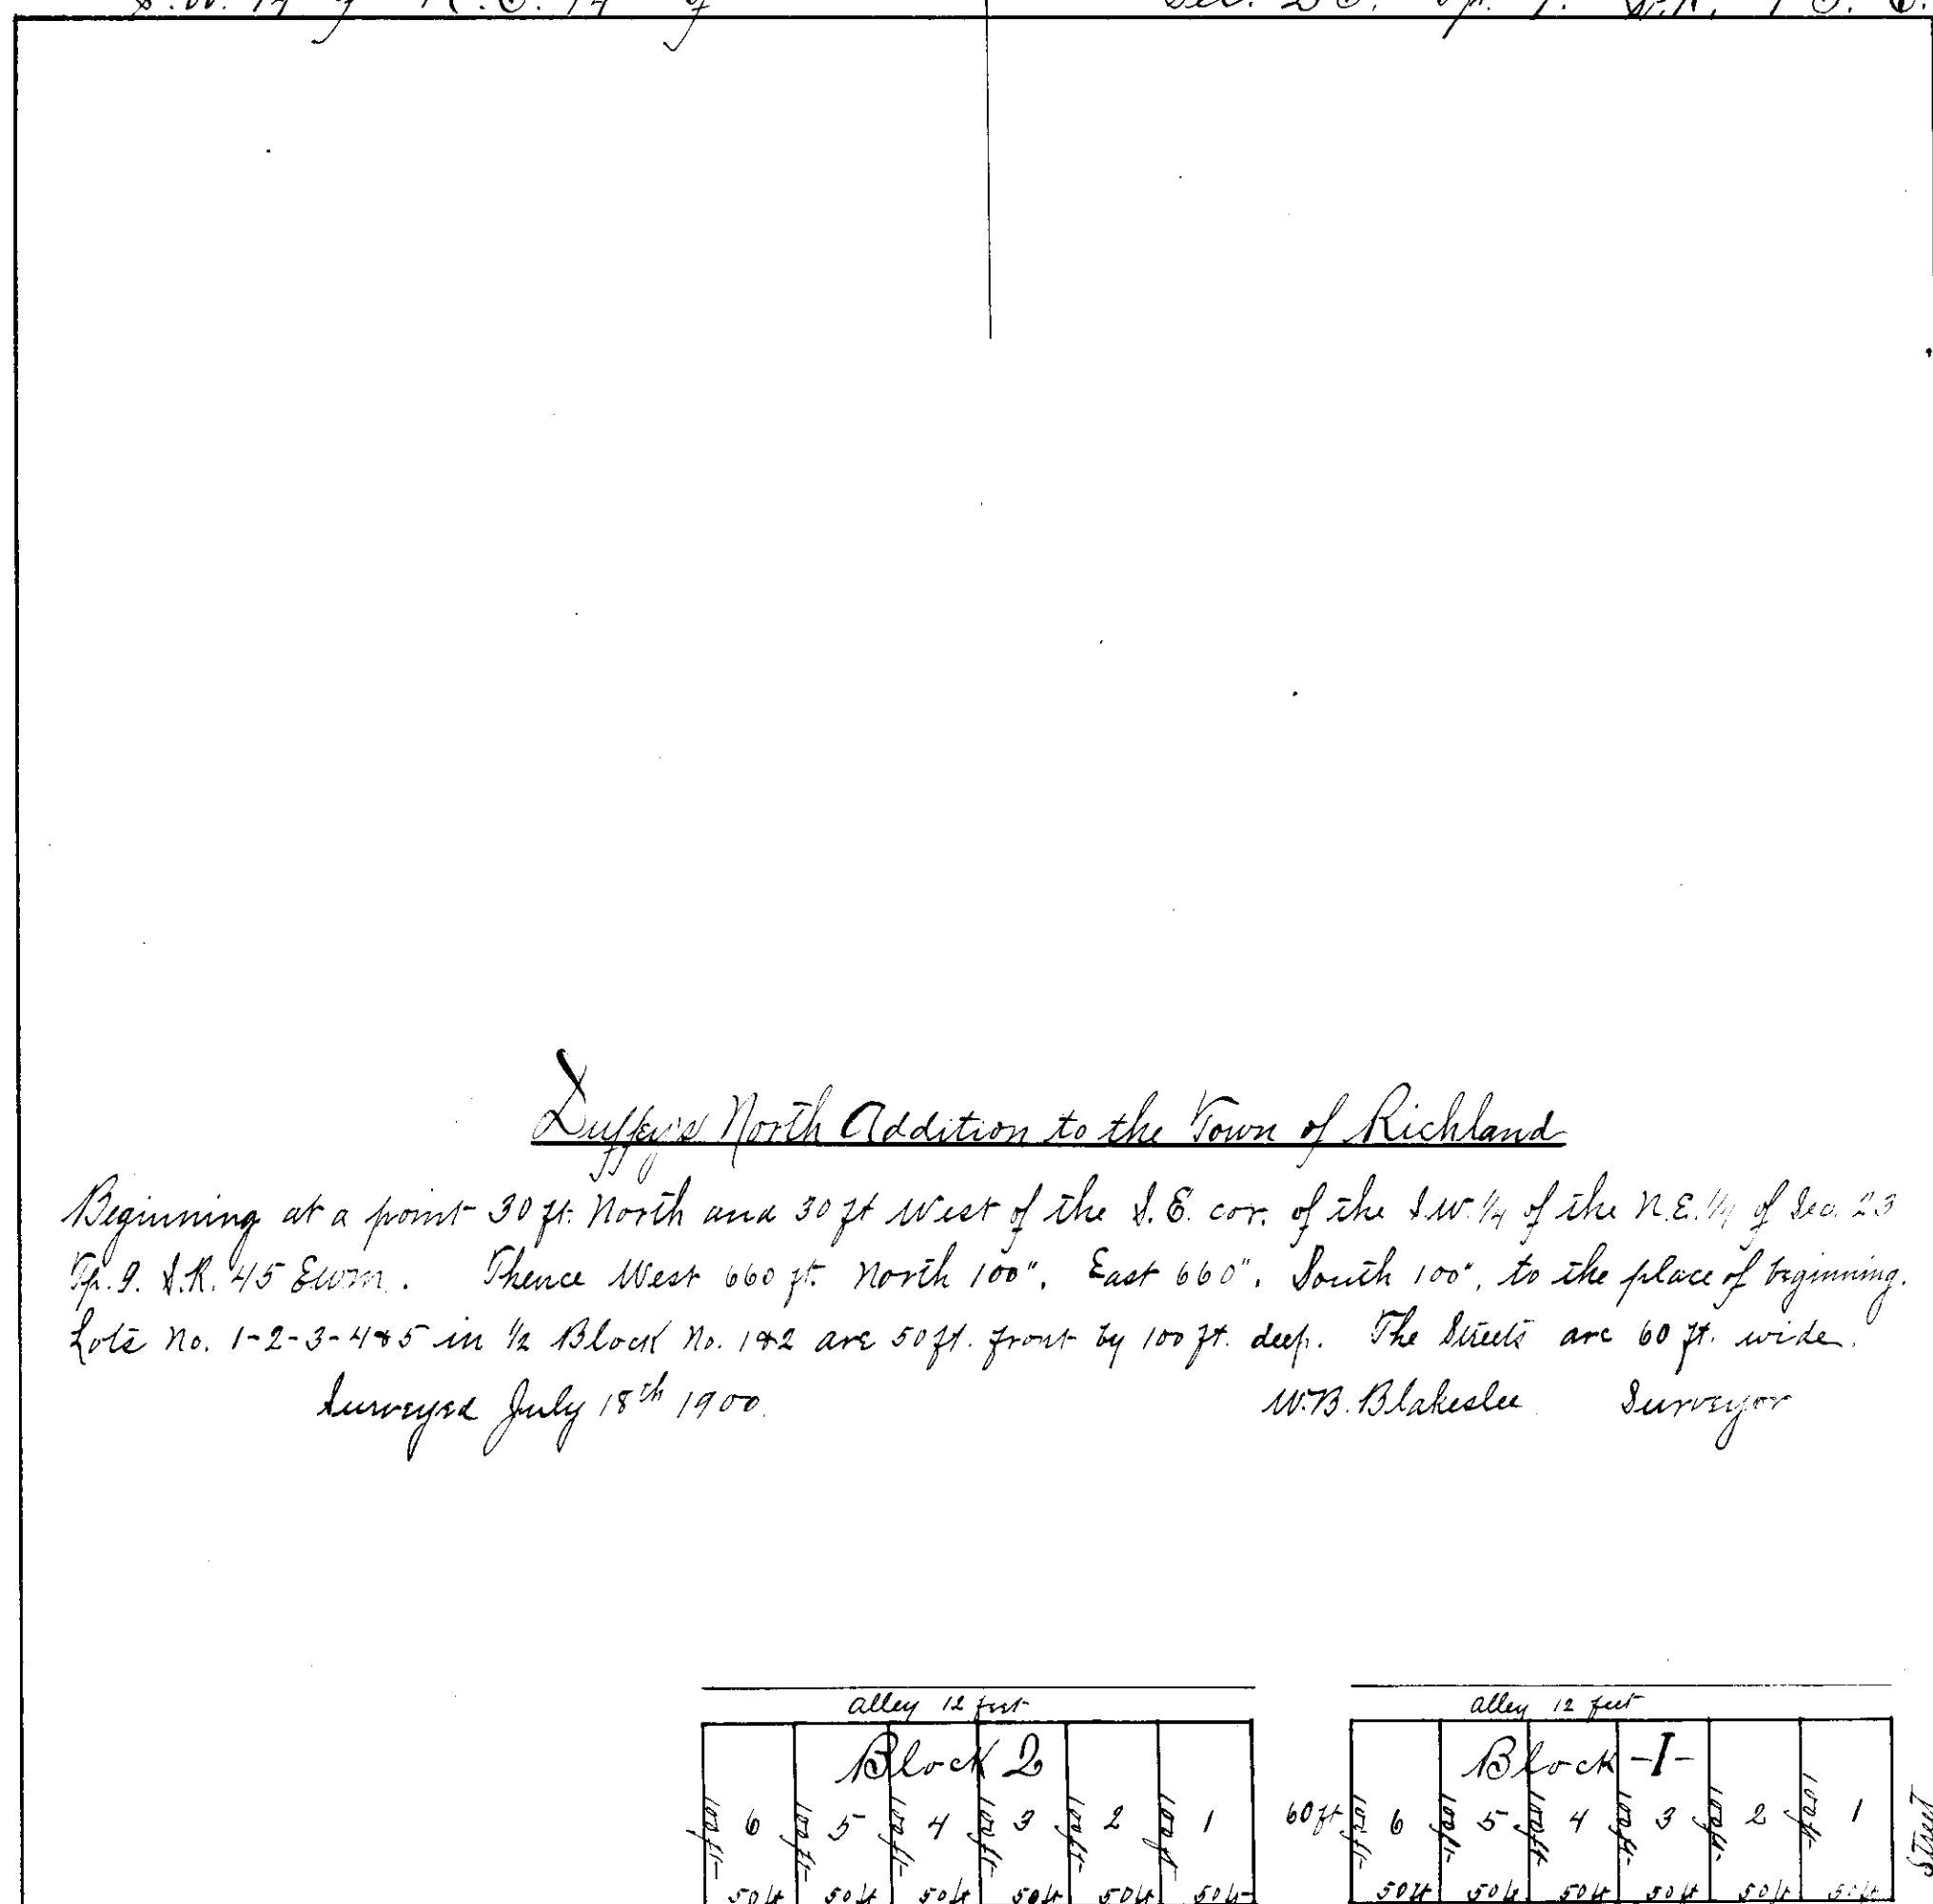 S.W. 1/4 of N.E. 1/4 of Sec. 23. Tp. 9. S.R. 45. E.
Duffey's North Addition to the Town of Richland
Beginning at a point 30 ft. North and 30 ft West of the S.E. cor. of the S.W. 1/4 of the N.E. 1/4 of Sec. 23
Tp. 9. S.R. 45 E.W.M. Thence West 660 ft. North 100", East 660", South 100", to the place of beginning.
Lots No. 1-2-3-4&5 in 1/2 Block No. 1&2 are 50 ft. front by 100 ft. deep. The Streets are 60 ft. wide.
Surveyed July 18th 1900. W.B. Blakeslee Surveyor
alley 12 feet alley 12 feet
Block 2 Block -I-
100ft 6 100ft 5 100ft 4 100ft 3 100ft 2 100ft 1 60ft 100ft 6 100ft 5 100ft 4 100ft 3 100ft 2 100ft 1 Street
50ft 50ft 50ft 50ft 50ft 50ft 50ft 50ft 50ft 50ft 50ft 50ft